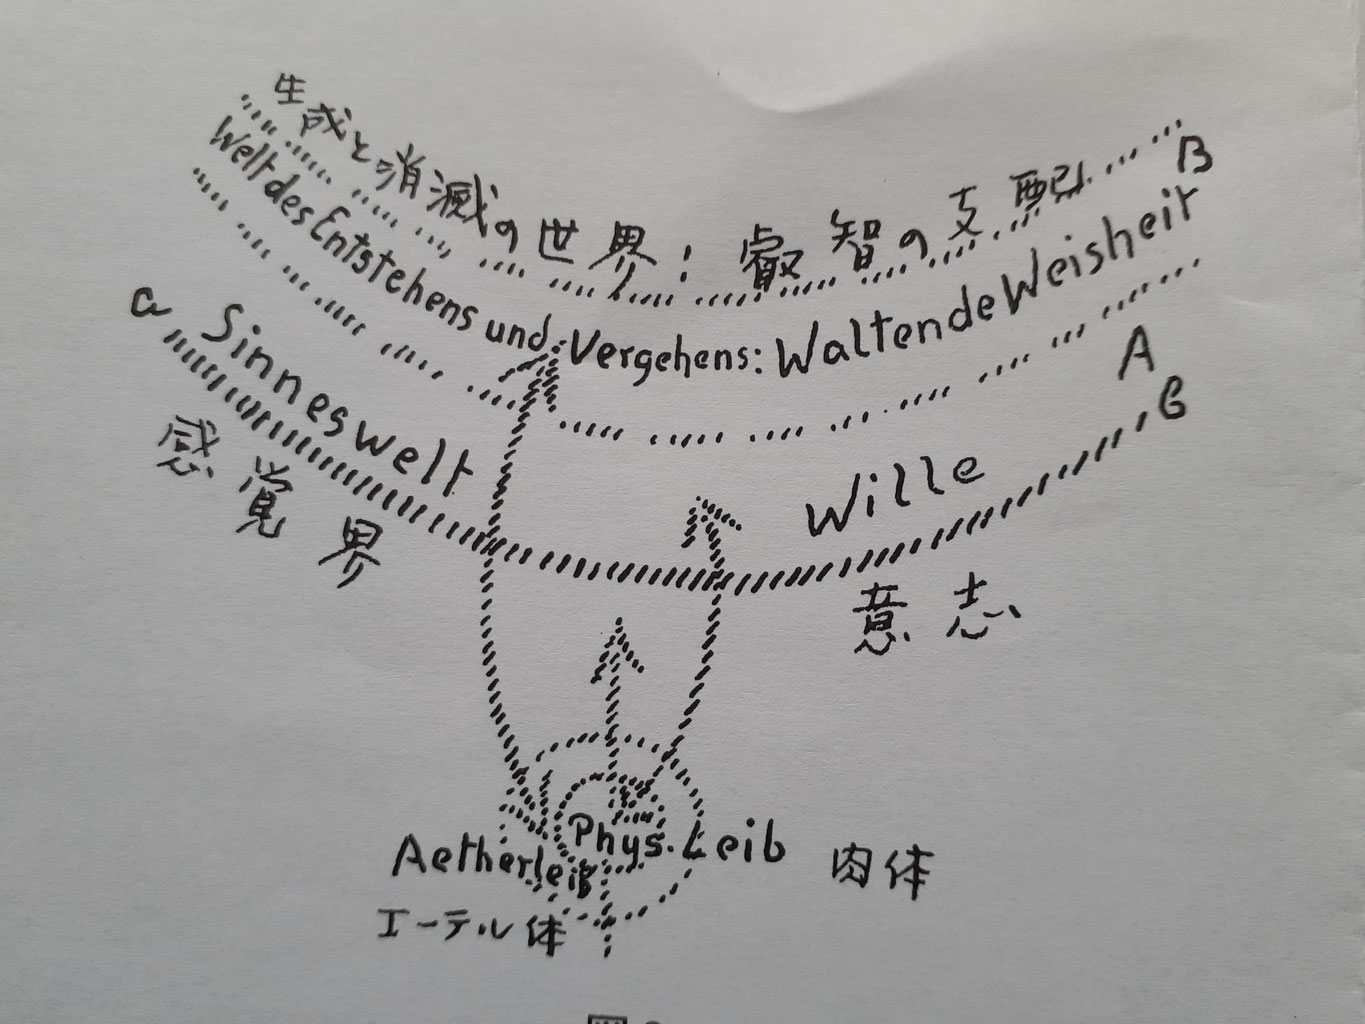 生成と消滅の世界：叡智の支配
B
Welt des Entstehens und Vergehens: Waltende Weisheit
A
a
b
Sinneswelt
感覚界
Wille
意志
Phys. Leib
肉体
Aetherleib
エーテル体